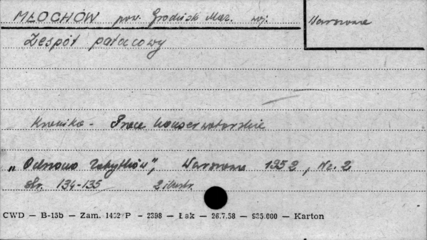 MŁOCHÓW pow. Grodzisk Maz. woj. Warszawa
Zespół pałacowy
Kronika - Prace konserwatorskie
„Ochrona Zabytków", Warszawa 1952, Nr. 2
str. 134-135 2 ilustr.
CWD — B-15b — Zam. — 2398 — Łak — 26.7.58 — 525.000 — Karton